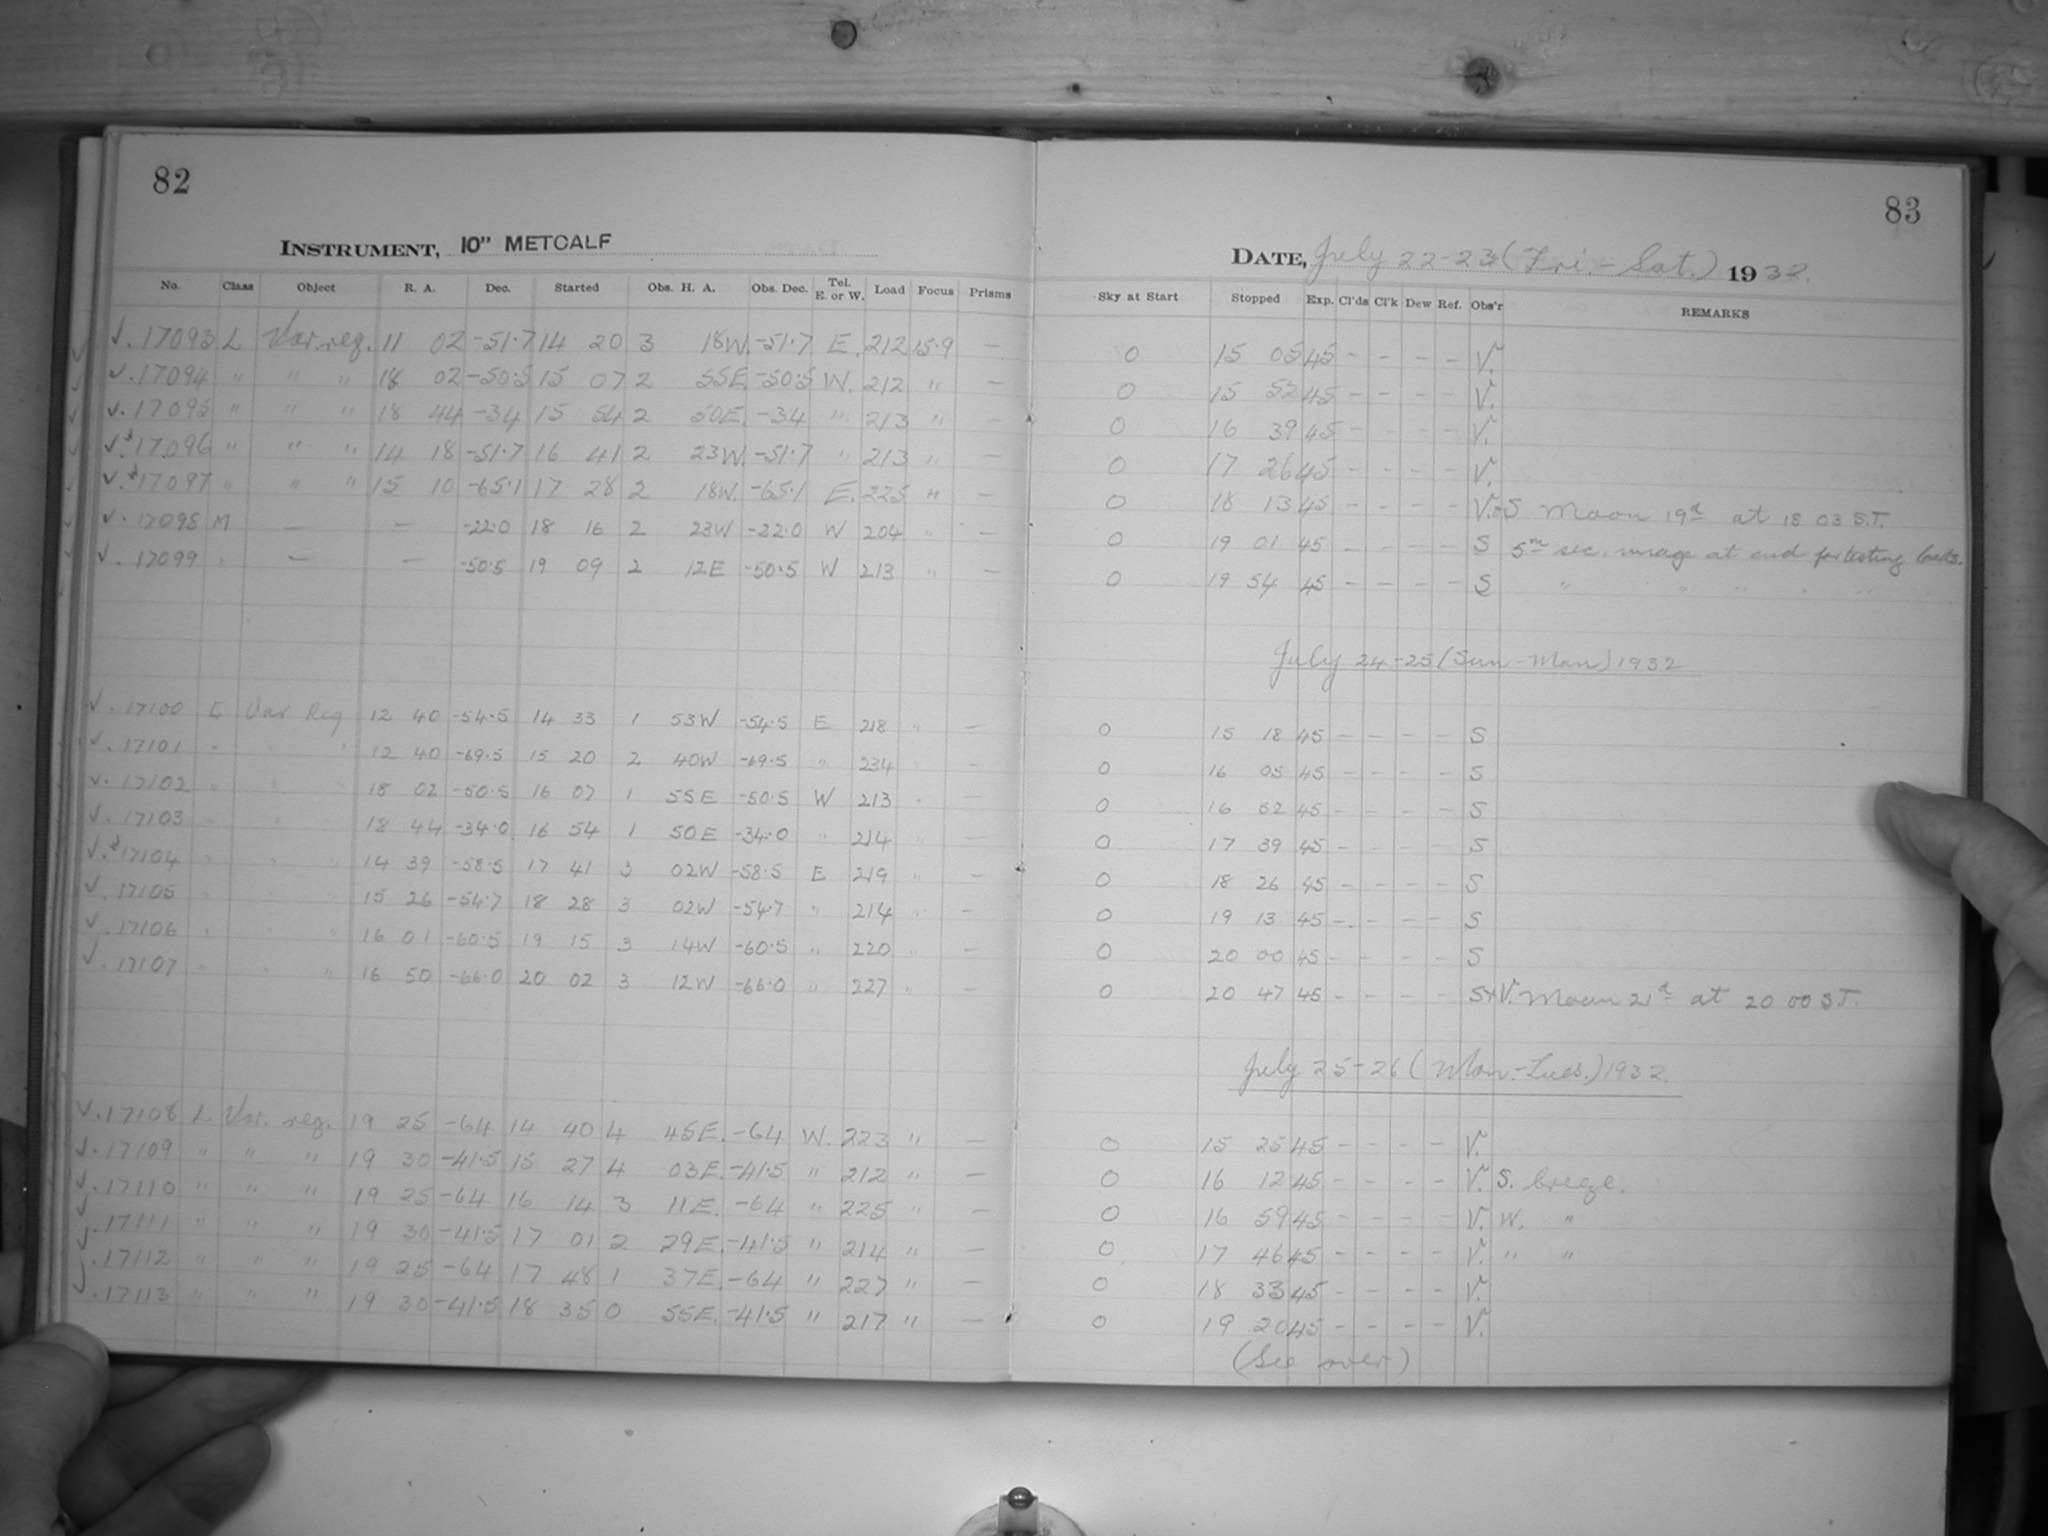 82
INSTRUMENT, 10" METCALF
No. Class Object R. A. Dec. Started Obs. H. A. Obs. Dec. Tel. E. or W. Load Focus Prisms
√. 17093 L Var. reg. 11 02 -51.7 14 20 3 18W. -51.7 E. 212 15.9 —
√. 17094 " " " 18 02 -50.5 15 07 2 55E. -50.5 W. 212 " —
√. 17095 " " " 18 44 -34 15 54 2 50E. -34 " 213 " —
√. 17096 " " " 14 18 -51.7 16 41 2 23W. -51.7 " 213 " —
√. 17097 " " " 15 10 -65.1 17 28 2 18W. -65.1 E. 225 " —
√. 17098 M — — -22.0 18 16 2 23W -22.0 W 204 " —
√. 17099 " — — -50.5 19 09 2 12E -50.5 W 213 " —
√. 17100 L Var Reg 12 40 -54.5 14 33 1 53W -54.5 E 218 " —
√. 17101 " " " 12 40 -69.5 15 20 2 40W -69.5 " 234 " —
√. 17102 " " " 18 02 -50.5 16 07 1 55E -50.5 W 213 " —
√. 17103 " " " 18 44 -34.0 16 54 1 50E -34.0 " 214 " —
√. 17104 " " " 14 39 -58.5 17 41 3 02W -58.5 E 219 " —
√. 17105 " " " 15 26 -54.7 18 28 3 02W -54.7 " 214 " —
√. 17106 " " " 16 01 -60.5 19 15 3 14W -60.5 " 220 " —
√. 17107 " " " 16 50 -66.0 20 02 3 12W -66.0 " 227 " —
√. 17108 L Var. reg. 19 25 -64 14 40 4 45E. -64 W. 223 " —
√. 17109 " " " 19 30 -41.5 15 27 4 03E. -41.5 " 212 " —
√. 17110 " " " 19 25 -64 16 14 3 11E. -64 " 225 " —
√. 17111 " " " 19 30 -41.5 17 01 2 29E. -41.5 " 214 " —
√. 17112 " " " 19 25 -64 17 48 1 37E. -64 " 227 " —
√. 17113 " " " 19 30 -41.5 18 35 0 55E. -41.5 " 217 " —
83
DATE, July 22-23 (Fri.-Sat.) 1932.
Sky at Start Stopped Exp. Cl'ds Cl'k Dew Ref. Obs'r REMARKS
0 15 05 45 - - - - V.
0 15 52 45 - - - - V.
0 16 39 45 - - - - V.
0 17 26 45 - - - - V.
0 18 13 45 - - - - V.+S Moon 19d at 18 03 S.T.
0 19 01 45 - - - - S 5m sec. image at end for testing
0 19 54 45 - - - - S " " " " "
July 24-25 (Sun-Mon) 1932
0 15 18 45 - - - - S
0 16 05 45 - - - - S
0 16 52 45 - - - - S
0 17 39 45 - - - - S
0 18 26 45 - - - - S
0 19 13 45 - - - - S
0 20 00 45 - - - - S
0 20 47 45 - - - - S+V. Moon 21d at 20 00 S.T.
July 25-26 (Mon.-Tues.) 1932.
0 15 25 45 - - - - V.
0 16 12 45 - - - - V. S. breeze.
0 16 59 45 - - - - V. W. "
0 17 46 45 - - - - V. " "
0 18 33 45 - - - - V.
0 19 20 45 - - - - V.
(See over)